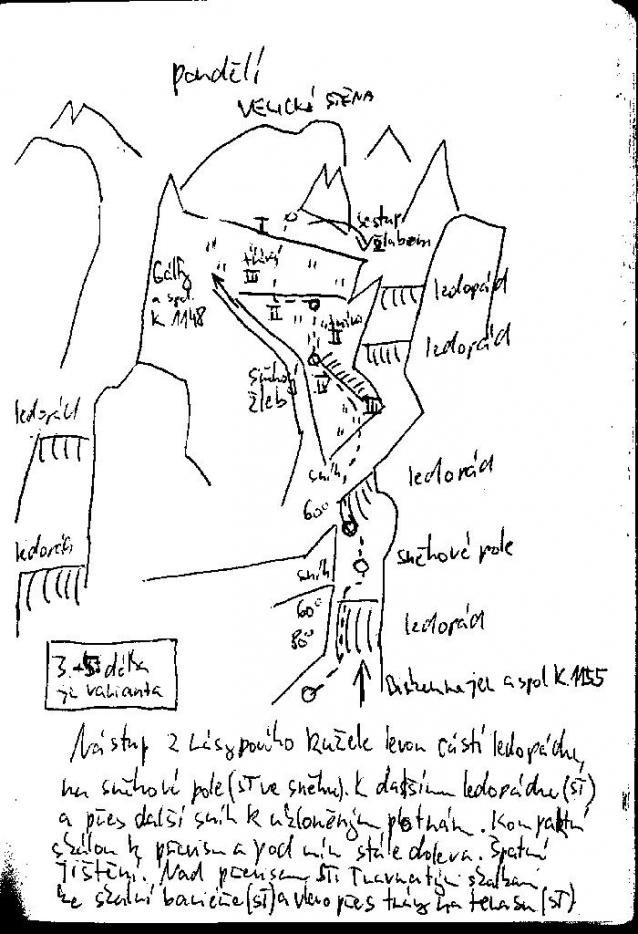 pondělí
VELICKÁ STĚNA
I
sestup
žlabem
Gálfy
a spol.
K 1148
trávy
III
II
ledopád
ledopád
II
sněhový
žleb
IV
III
ledopád
ledopád
sníh
60°
sněhové pole
ledopád
sníh
60°
80°
ledopád
a spol K. 1155
3. - 5. délka
je varianta
Nástup z násypového kužele levou částí ledopádu,
na sněhové pole (ST ve sněhu). K dalšímu ledopádu (ST)
a přes další sníh k ukloněným plotnám. Kompaktní
skálou k převisu a pod ním stále doleva. Špatné
jištění. Nad převisem ST. Travnatými skalkami
ke skalní bariéře (ST) a vlevo přes trávy na terasu (ST)